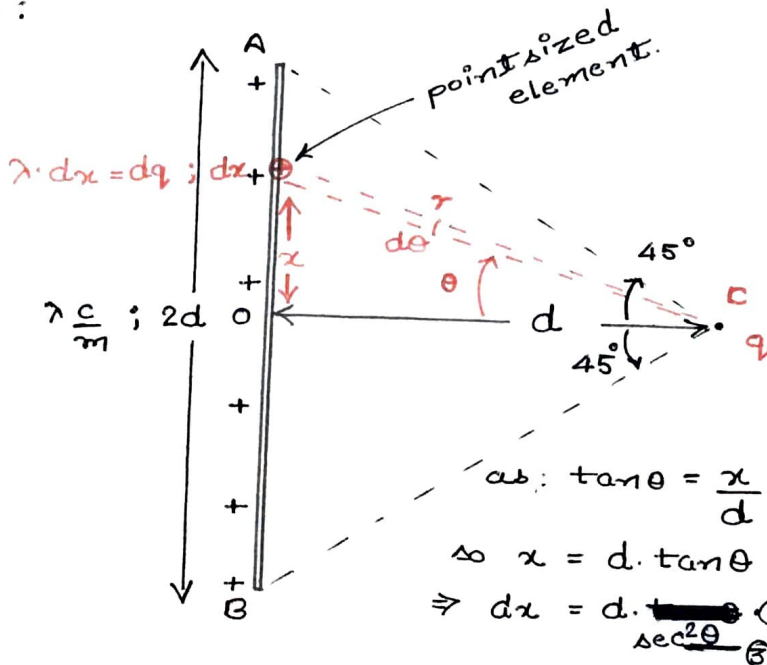 :
A
point sized
element.
+
λ·dx = dq ; dx +
r
dθ
x
θ
45°
+
λ c/m ; 2d
O
d
C
q
45°
+
as: tanθ = x/d
+
so x = d. tanθ
+
B
⇒ dx = d. sec²θ